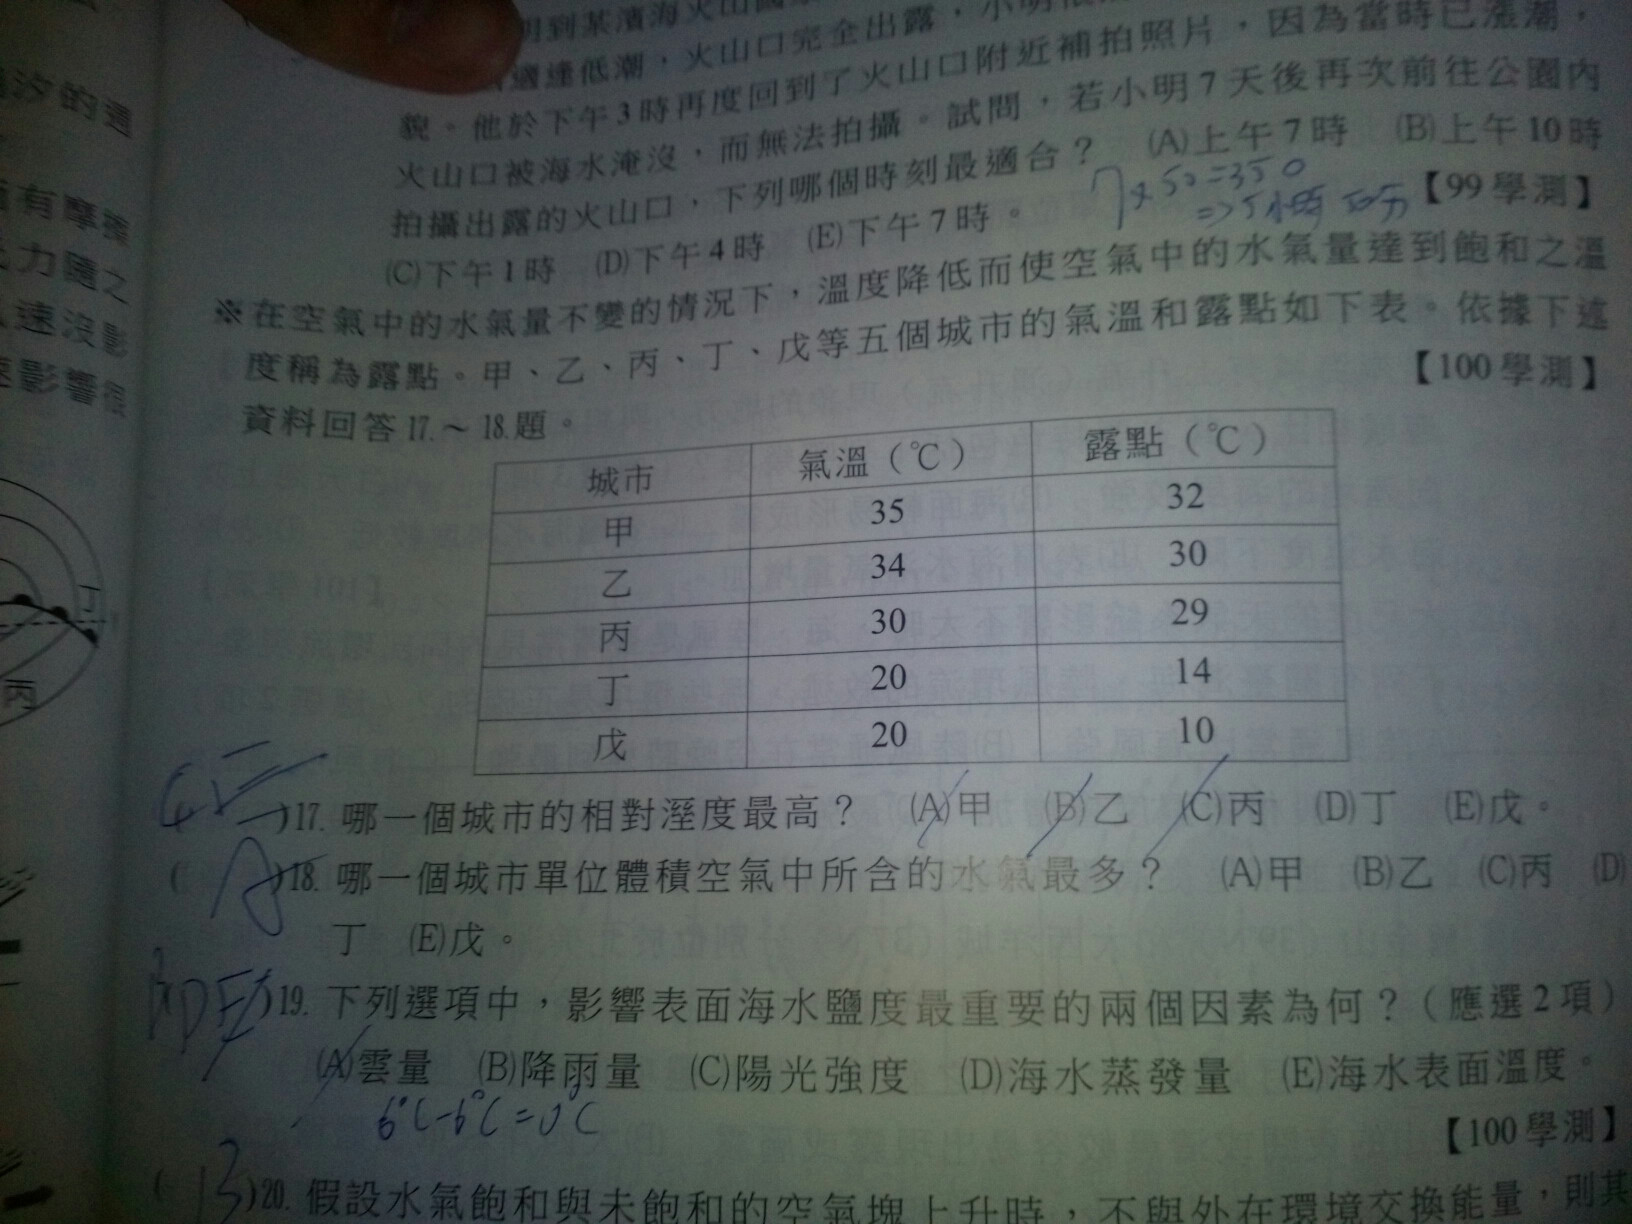 明到某濱海火山國
適逢低潮，火山口完全出露，小明
貌。他於下午3時再度回到了火山口附近補拍照片，因為當時已漲潮，
火山口被海水淹沒，而無法拍攝。試問，若小明7天後再次前往公園內
拍攝出露的火山口，下列哪個時刻最適合？ (A)上午7時 (B)上午10時
(C)下午1時 (D)下午4時 (E)下午7時。 【99學測】
7×50=350
=>5小時50分
※在空氣中的水氣量不變的情況下，溫度降低而使空氣中的水氣量達到飽和之溫
度稱為露點。甲、乙、丙、丁、戊等五個城市的氣溫和露點如下表。依據下述
資料回答17.～18.題。 【100學測】
城市 氣溫（℃） 露點（℃）
甲 35 32
乙 34 30
丙 30 29
丁 20 14
戊 20 10
)17. 哪一個城市的相對溼度最高？ (A)甲 (B)乙 (C)丙 (D)丁 (E)戊。
( A )18. 哪一個城市單位體積空氣中所含的水氣最多？ (A)甲 (B)乙 (C)丙 (D)
丁 (E)戊。
)19. 下列選項中，影響表面海水鹽度最重要的兩個因素為何？（應選2項）
(A)雲量 (B)降雨量 (C)陽光強度 (D)海水蒸發量 (E)海水表面溫度。
6°C-6°C=0°C
【100學測】
( B )20. 假設水氣飽和與未飽和的空氣塊上升時，不與外在環境交換能量，則其
汐的週
有摩擦
力隨之
速沒影
影響很
丁
丙